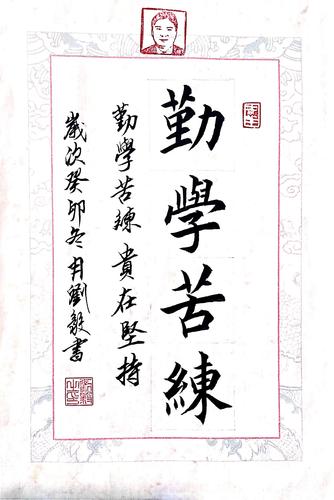 勤學苦練
勤學苦練貴在堅持
歲次癸卯冬月劉毅書